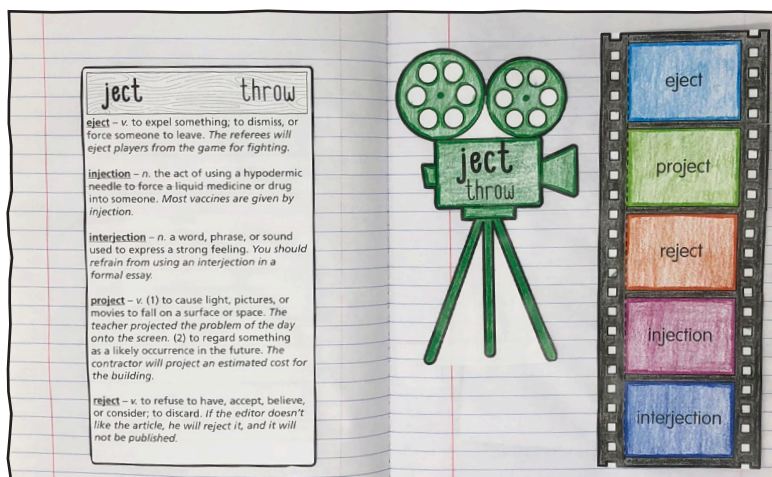 ject throw
eject – v. to expel something; to dismiss, or
force someone to leave. The referees will
eject players from the game for fighting.
injection – n. the act of using a hypodermic
needle to force a liquid medicine or drug
into someone. Most vaccines are given by
injection.
interjection – n. a word, phrase, or sound
used to express a strong feeling. You should
refrain from using an interjection in a
formal essay.
project – v. (1) to cause light, pictures, or
movies to fall on a surface or space. The
teacher projected the problem of the day
onto the screen. (2) to regard something
as a likely occurrence in the future. The
contractor will project an estimated cost for
the building.
reject – v. to refuse to have, accept, believe,
or consider; to discard. If the editor doesn't
like the article, he will reject it, and it will
not be published.
ject
throw
eject
project
reject
injection
interjection